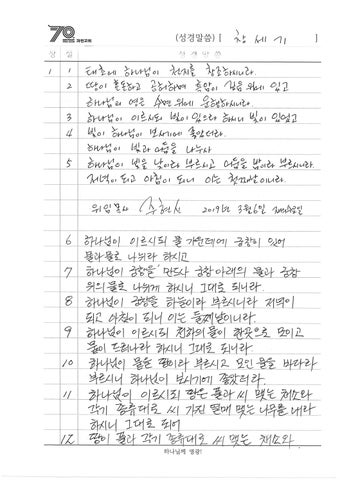 70 과천교회
(성경말씀) [ 창세기 ]
장 절 성경말씀
1 1 태초에 하나님이 천지를 창조하시니라.
2 땅이 혼돈하고 공허하며 흑암이 깊음 위에 있고
하나님의 영은 수면 위에 운행하시니라.
3 하나님이 이르시되 빛이 있으라 하시니 빛이 있었고
4 빛이 하나님이 보시기에 좋았더라.
하나님이 빛과 어둠을 나누사
5 하나님이 빛을 낮이라 부르시고 어둠을 밤이라 부르시니라.
저녁이 되고 아침이 되니 이는 첫째날이니라.
위임목사 주현신 2019년 3월 6일
6 하나님이 이르시되 물 가운데에 궁창이 있어
물과 물로 나뉘라 하시고
7 하나님이 궁창을 만드사 궁창 아래의 물과 궁창
위의 물로 나뉘게 하시니 그대로 되니라.
8 하나님이 궁창을 하늘이라 부르시니라 저녁이
되고 아침이 되니 이는 둘째날이니라.
9 하나님이 이르시되 천하의 물이 한곳으로 모이고
뭍이 드러나라 하시니 그대로 되니라.
10 하나님이 뭍을 땅이라 부르시고 모인 물을 바다라
부르시니 하나님이 보시기에 좋았더라.
11 하나님이 이르시되 땅은 풀과 씨 맺는 채소와
각기 종류대로 씨 가진 열매 맺는 나무를 내라
하시니 그대로 되어
12 땅이 풀과 각기 종류대로 씨 맺는 채소와
하나님께 영광!